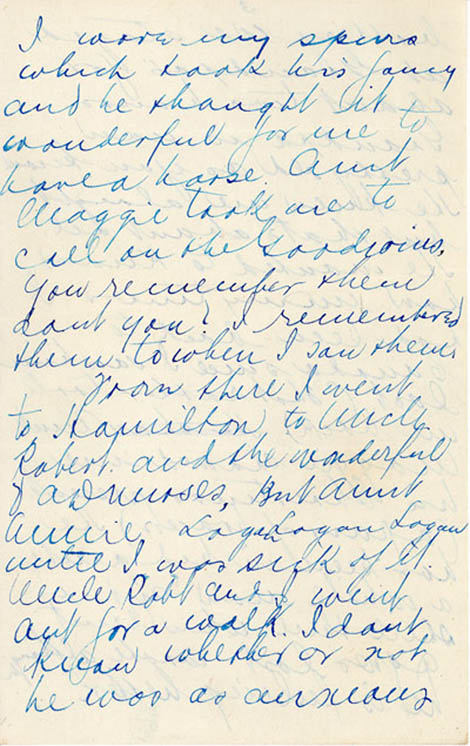 I wore my spurs
which took his fancy
and he thought it
wonderful for me to
have a horse. Aunt
Maggie took me to
call on the Goodwins,
you remember them
dont you? I remembered
them to when I saw them.
From there I went
to Hamilton, to Uncle
Robert. and the wonderful
nurses, But Aunt
Annie, Logan Logan Logan
until I was sick of it.
Uncle Robt and I went
out for a walk. I dont
know whether or not
he was as anxious